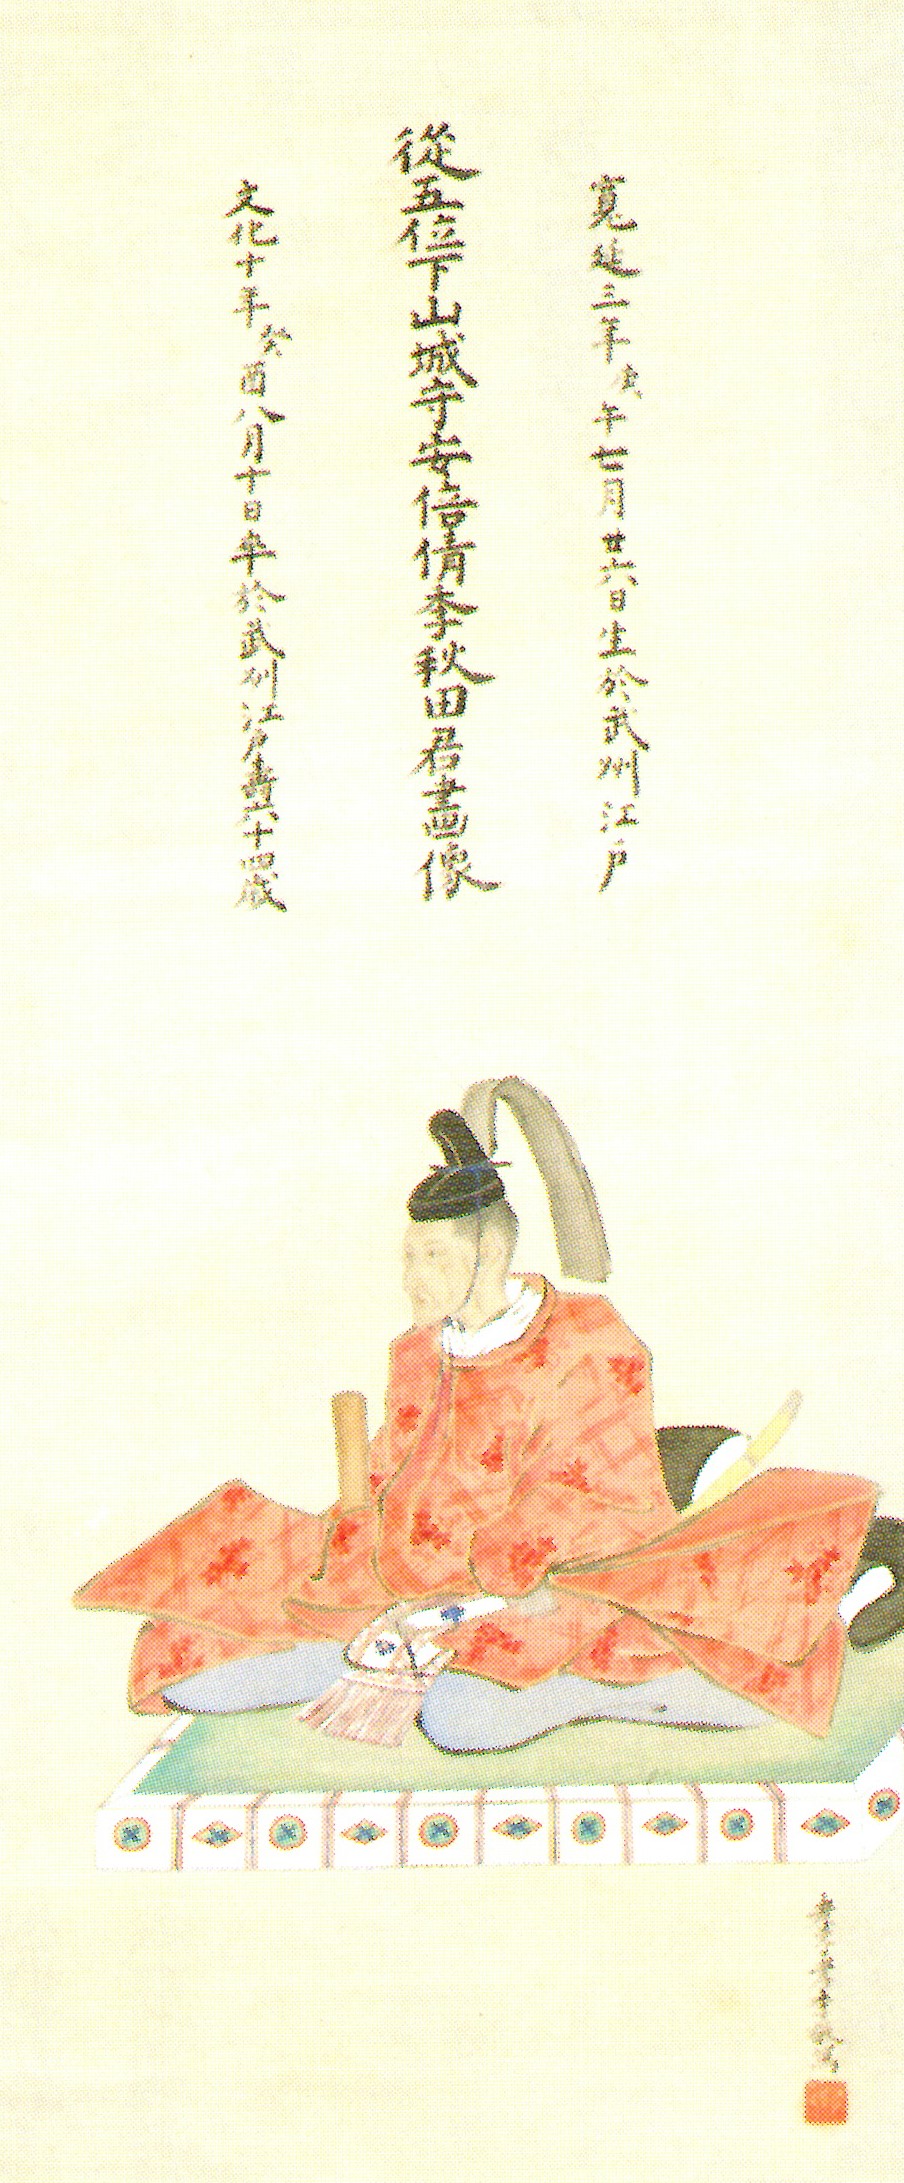 寛延三年庚午七月廿六日生於武州江戸
從五位下山城守安倍倩季秋田君畫像
文化十年癸酉八月十日卒於武州江戸壽六十四歳